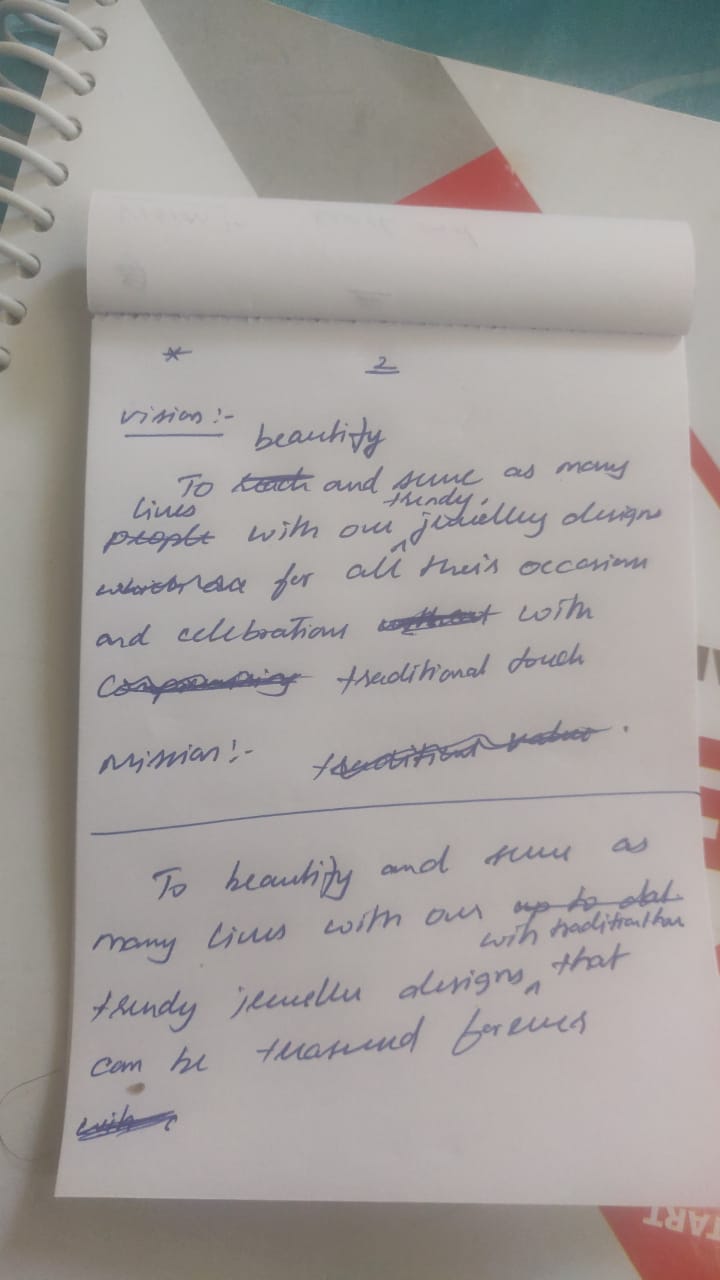 *
2
Vision :-
beautify
To reach and serve as many
lives trendy
people with our jewellery designs
for all their occasions
and celebrations without with
Compromising traditional touch
Mission :-
traditional value .
To beautify and serve as
many lives with our up to date
with traditional
trendy jewellery designs that
can be treasured forever
with
START